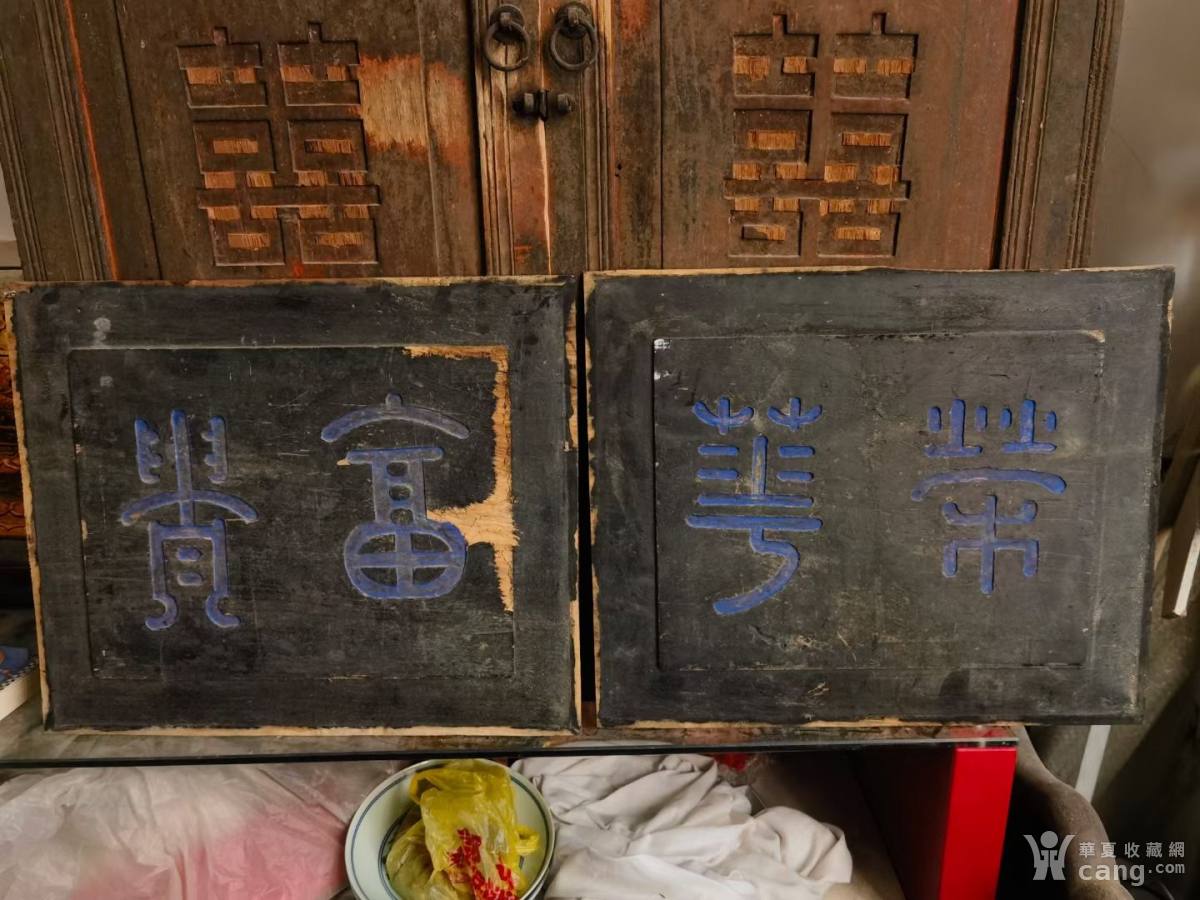 囍 囍
榮華
富貴
華夏收藏網
cang.com